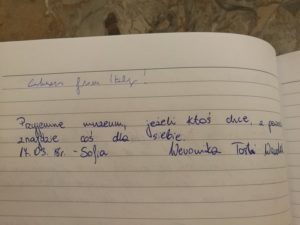 from Italy!
Przyjemne muzeum, jeżeli ktoś chce, z pew
znajdzie coś dla siebie.
17.03.18r. - Sofia Weronika Toski